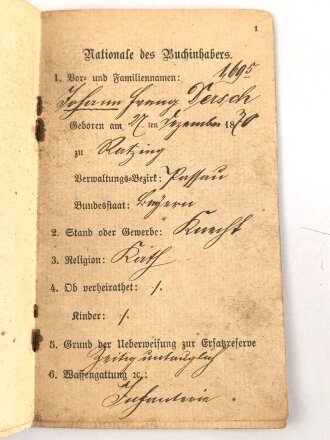 1
Nationale des Buchinhabers.
1,695
1. Vor- und Familiennamen:
Johann Franz Dersch
Geboren am 27 ten Dezember 1870
zu Ratzing
Verwaltungs-Bezirk: Passau
Bundesstaat: Bayern
2. Stand oder Gewerbe: Knecht
3. Religion: Kath
4. Ob verheirathet: /.
Kinder: /.
5. Grund der Ueberweisung zur Ersatzreserve
Zeitig untauglich
6. Waffengattung ꝛc.:
Infanterie.